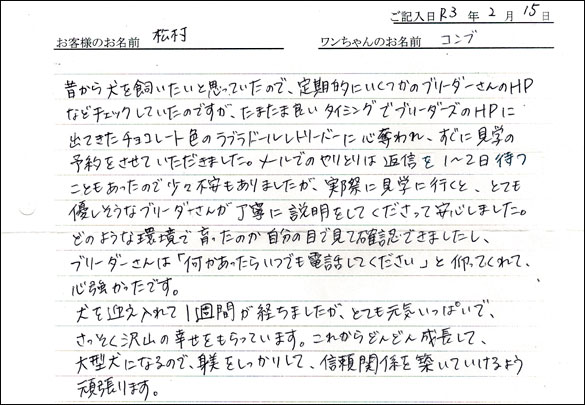 ご記入日 R3 年 2 月 15 日
お客様のお名前 松村 ワンちゃんのお名前 コンブ
昔から犬を飼いたいと思っていたので、定期的にいくつかのブリーダーさんのHP
などチェックしていたのですが、たまたま良いタイミングでブリーダーズのHPに
出てきたチョコレート色のラブラドールレトリーバーに心奪われ、すぐに見学の
予約をさせていただきました。メールでのやりとりは返信を1〜2日待つ
こともあったので少々不安もありましたが、実際に見学に行くと、とても
優しそうなブリーダーさんが丁寧に説明をしてくださって安心しました。
どのような環境で育ったのか自分の目で見て確認できましたし、
ブリーダーさんは「何かあったらいつでも電話してください」と仰ってくれて、
心強かったです。
犬を迎え入れて1週間が経ちましたが、とても元気いっぱいで、
さっそく沢山の幸せをもらっています。これからどんどん成長して、
大型犬になるので、躾をしっかりして、信頼関係を築いていけるよう
頑張ります。